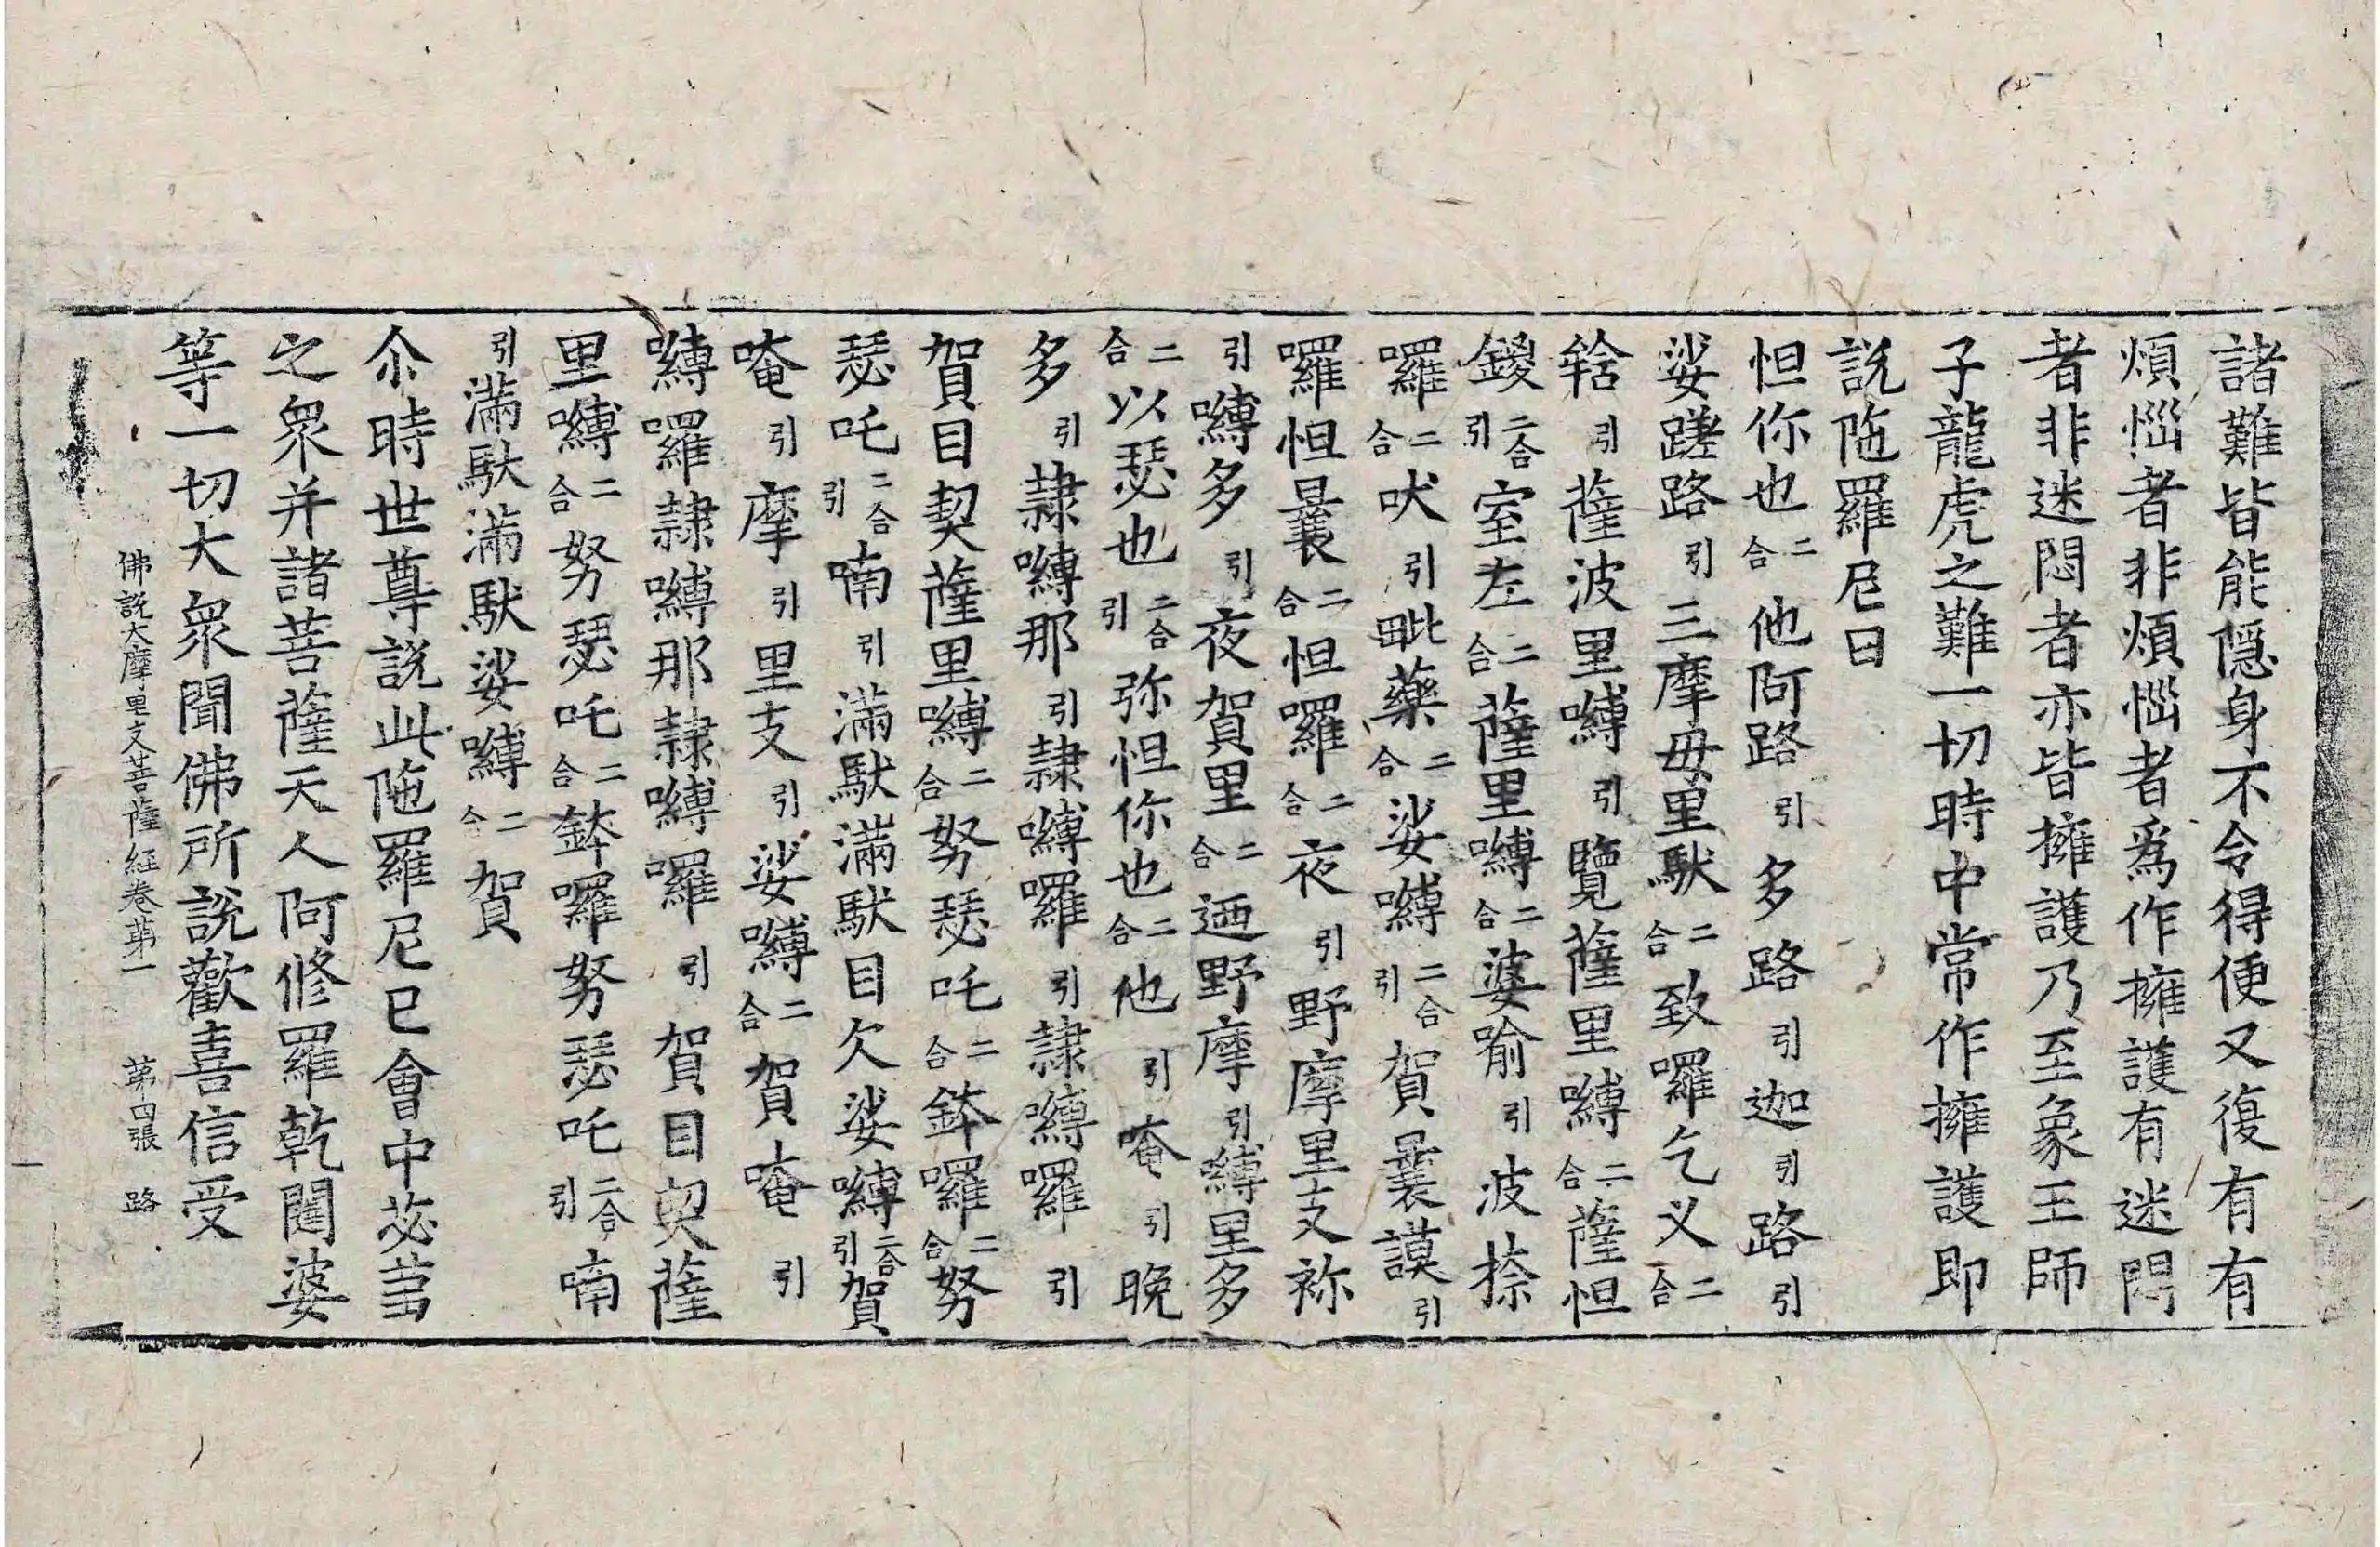 諸難皆能隱身不令得便又復有有
煩惱者非煩惱者爲作擁護有迷悶
者非迷悶者亦皆擁護乃至象王師
子龍虎之難一切時中常作擁護即
說陁羅尼曰
怛你也二合他阿路引多路引迦引路引
娑蹉路引三摩毋里馱二合致囉乞义二合
𨋢引薩波里嚩引覽薩里嚩二合薩怛
鑁二合引室左二合薩里嚩二合婆喻引波捺
囉二合吠引毗藥二合娑嚩二合引賀曩謨引
囉怛曩二合怛囉二合夜引野摩里支祢
引嚩多引夜賀里二合迺野摩引嚩里多
二合以瑟也二合引弥怛你也二合他引唵引晚
多引隷嚩那引隷嚩囉引隷嚩囉引
賀目契薩里嚩二合努瑟吒二合鉢囉二合努
瑟吒二合引喃引滿馱滿馱目欠娑嚩二合引賀
唵引摩引里支引娑嚩二合賀唵引
嚩囉隷嚩那隷嚩囉引賀目契薩
里嚩二合努瑟吒二合鉢囉努瑟吒二合引喃
引滿馱滿馱娑嚩二合賀
尒時世尊說此陁羅尼已會中苾蒭
之衆并諸菩薩天人阿修羅乾闥婆
等一切大衆聞佛所說歡喜信受
佛說大摩里支菩薩經卷苐一　苐四張　路